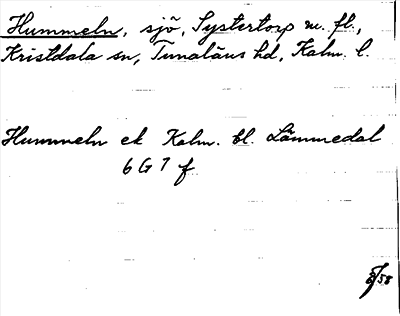 Hummeln, sjö, Systertorp m. fl.,
Kristdala sn, Tunaläns hd, Kalm. l.
Hummeln ek Kalm. bl. Lämmedal
6 G 7 f
/58